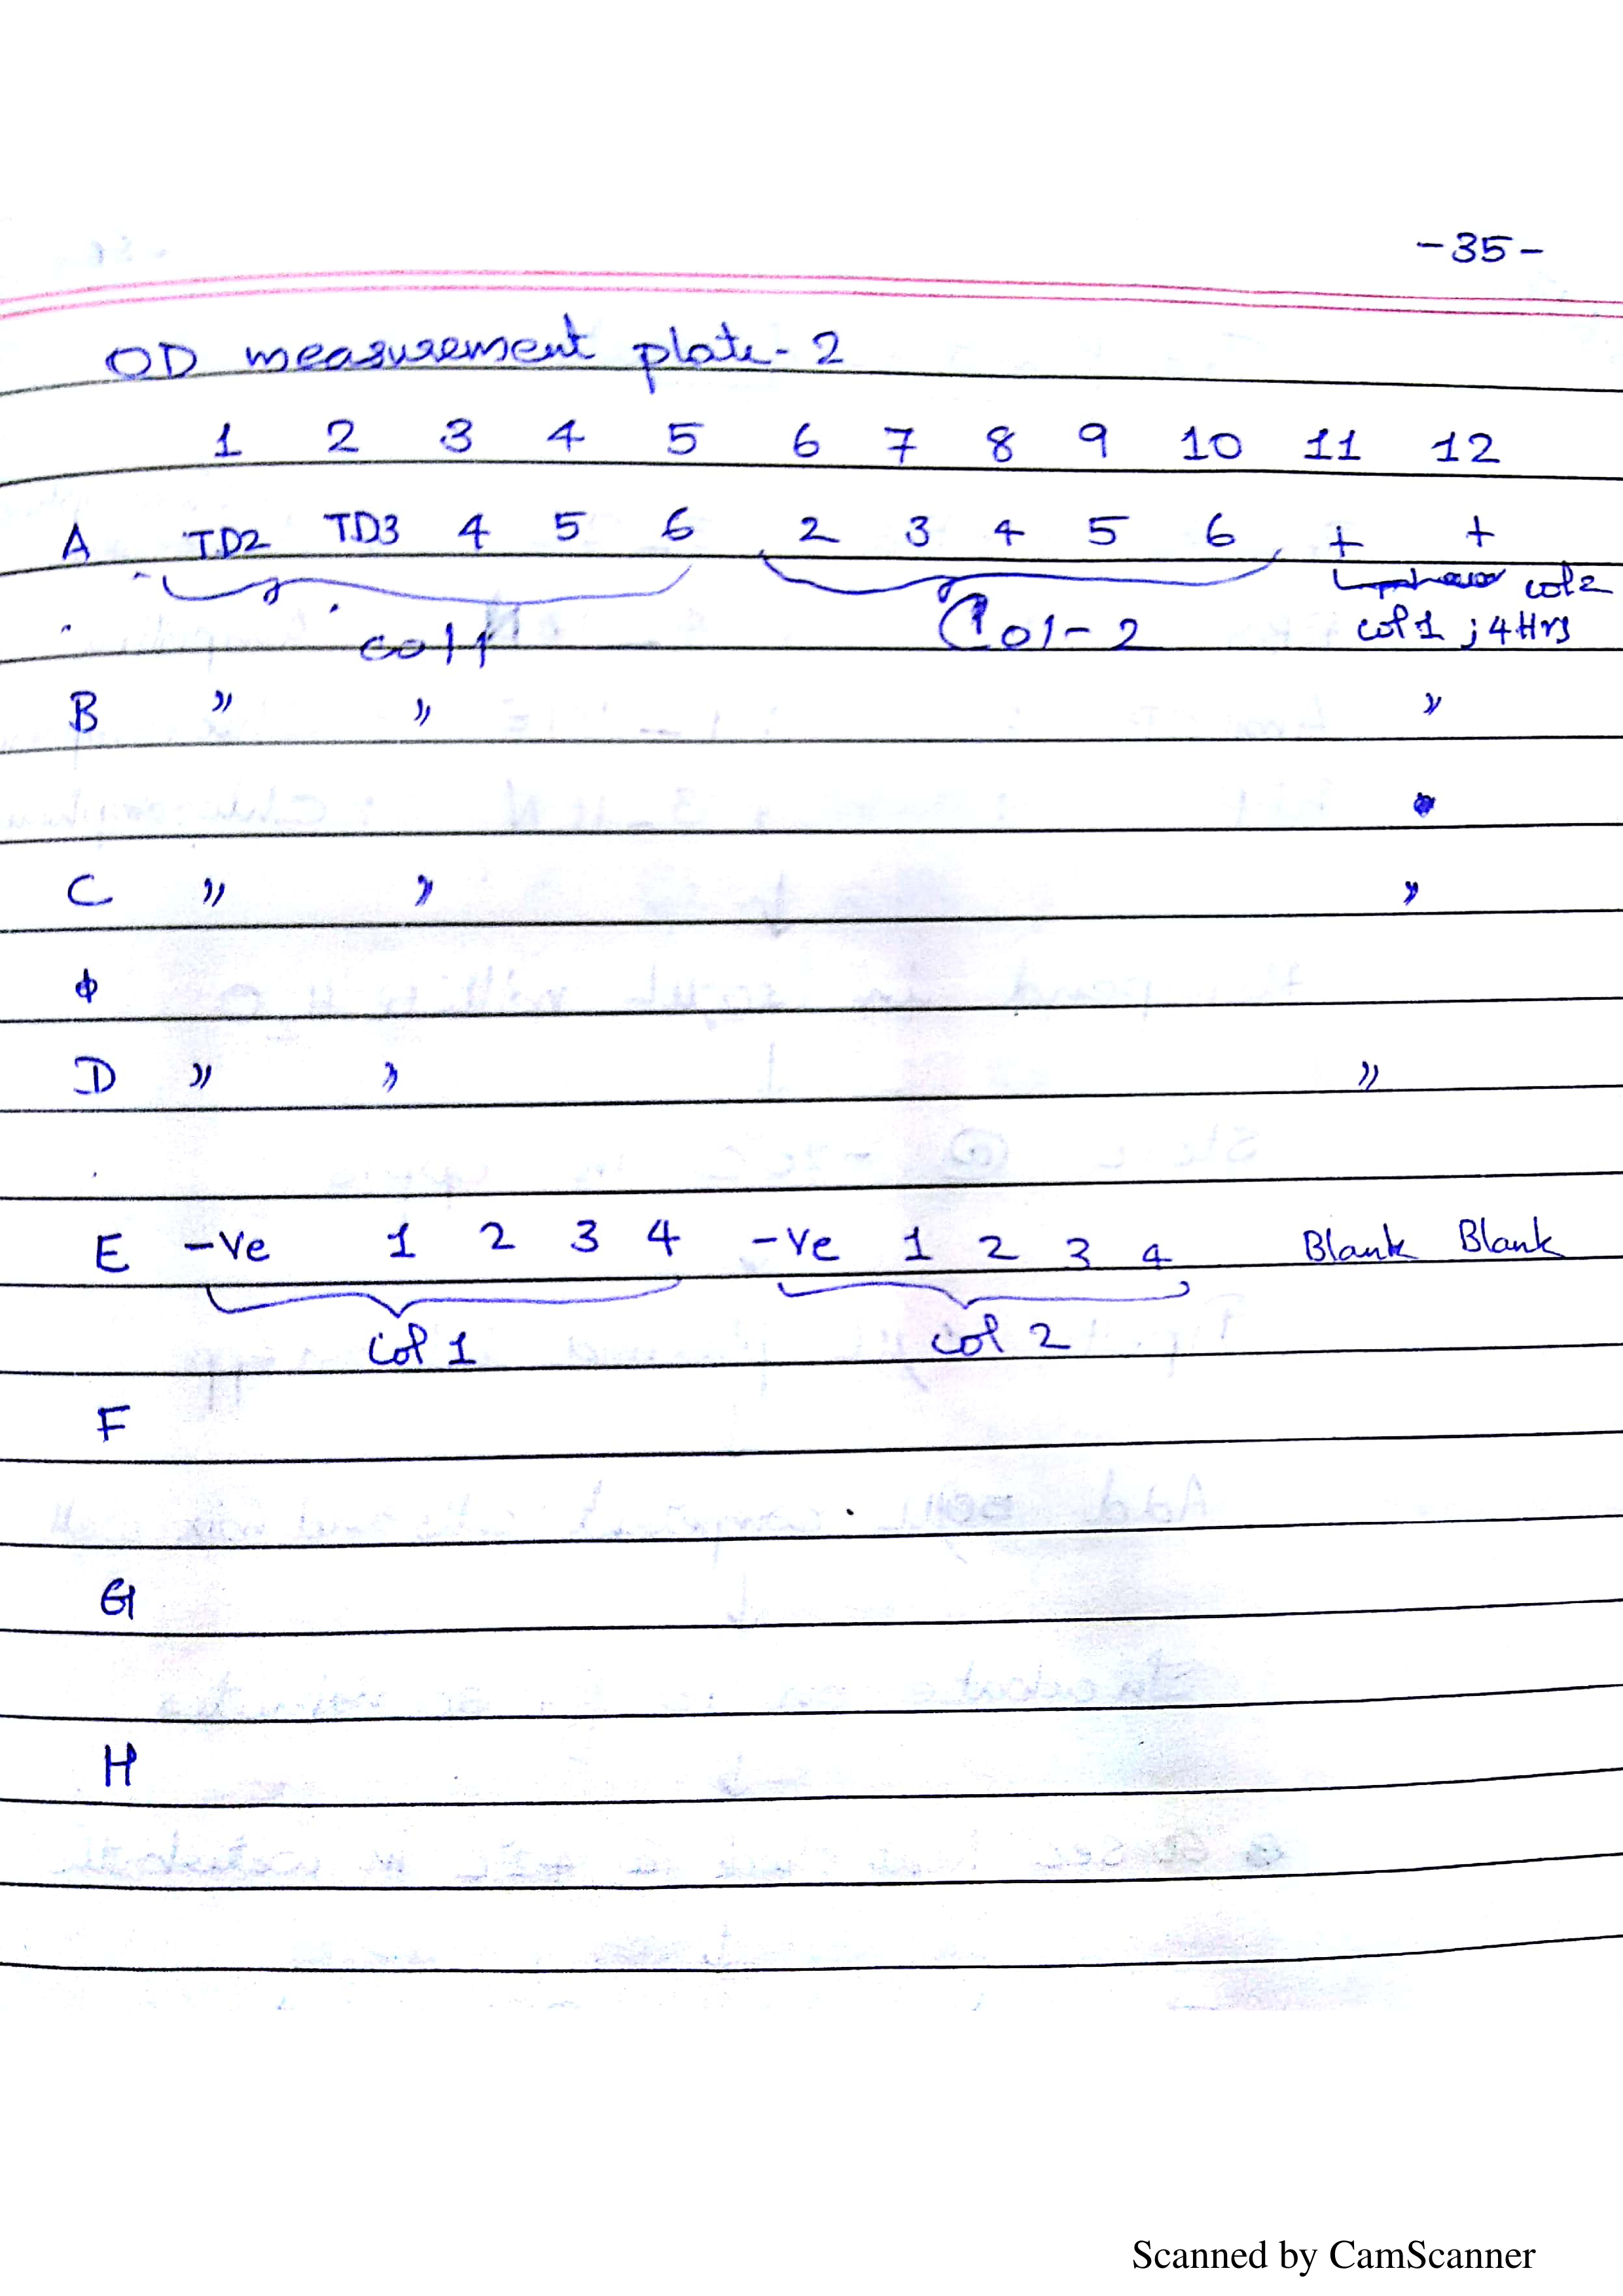 -35-
OD measurement plate-2
1 2 3 4 5 6 7 8 9 10 11 12
A TD2 TD3 4 5 6 2 3 4 5 6 + +
col2
col1 Col-2 col1 ; 4Hrs
B " " "
C " " "
D " " "
E -Ve 1 2 3 4 -Ve 1 2 3 4 Blank Blank
col 1 col 2
F
G
H
Scanned by CamScanner